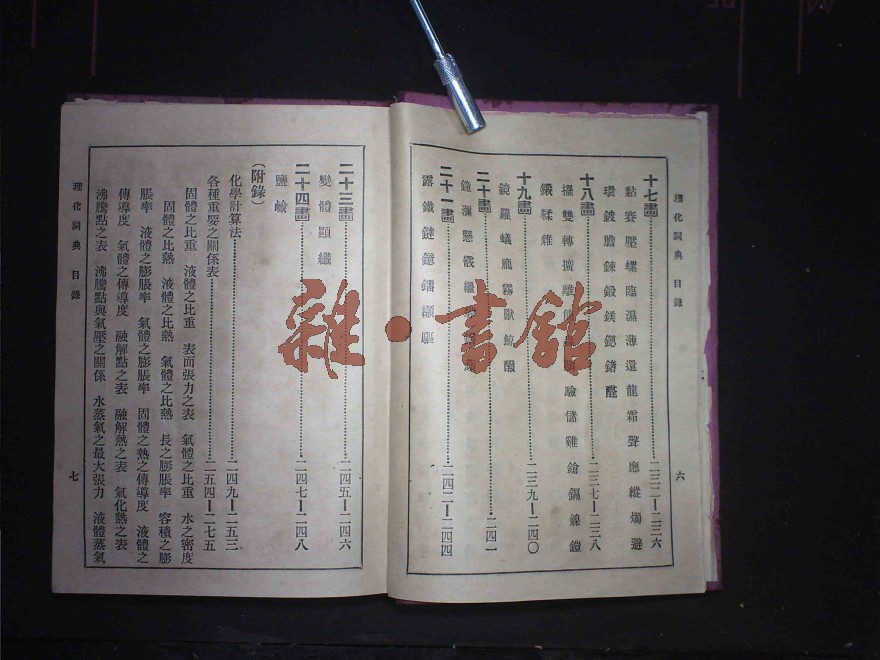 理化詞典 目錄
六
十七畫……二三二—二三六
黏 賽 壓 螺 臨 濕 薄 還 龍 霜 聲 應 縱 燭 避
環 鍍 膽 鍊 鍛 鎂 鍶 鍺 醛
十八畫……二三七—二三八
擺 雙 轉 擴 雕 驗 儲 雞 鎗 鎘 鎳 鎧
鍛 鞣 雜
十九畫……二三九—二四〇
鏡 羅 蟻 龐 霧 獸 鯨 醱
二十畫……二四一
鐘 瀰 懸
二十一畫……二四二—二四四
露 鐵 鐳
二十三畫……二四五—二四六
變 體 顯 纖
二十四畫……二四七—二四八
鹽 鹼
(附錄)
化學計算法……二四九—二五三
各種重要之關係表……二五四—二七五
固體之比重 液體之比重 表面張力之表 氣體之比重 水之密度
固體之比熱 液體之比熱 氣體之比熱 長之膨脹率 容積之膨
脹率 液體之膨脹率 氣體之膨脹率 固體之熱之傳導度 液體之
傳導度 氣體之傳導度 融解點之表 融解熱之表 氣化熱之表
沸騰點之表 沸騰點與氣壓之關係 水蒸氣之最大張力 液體蒸氣
理化詞典 目錄
七
雜·書館